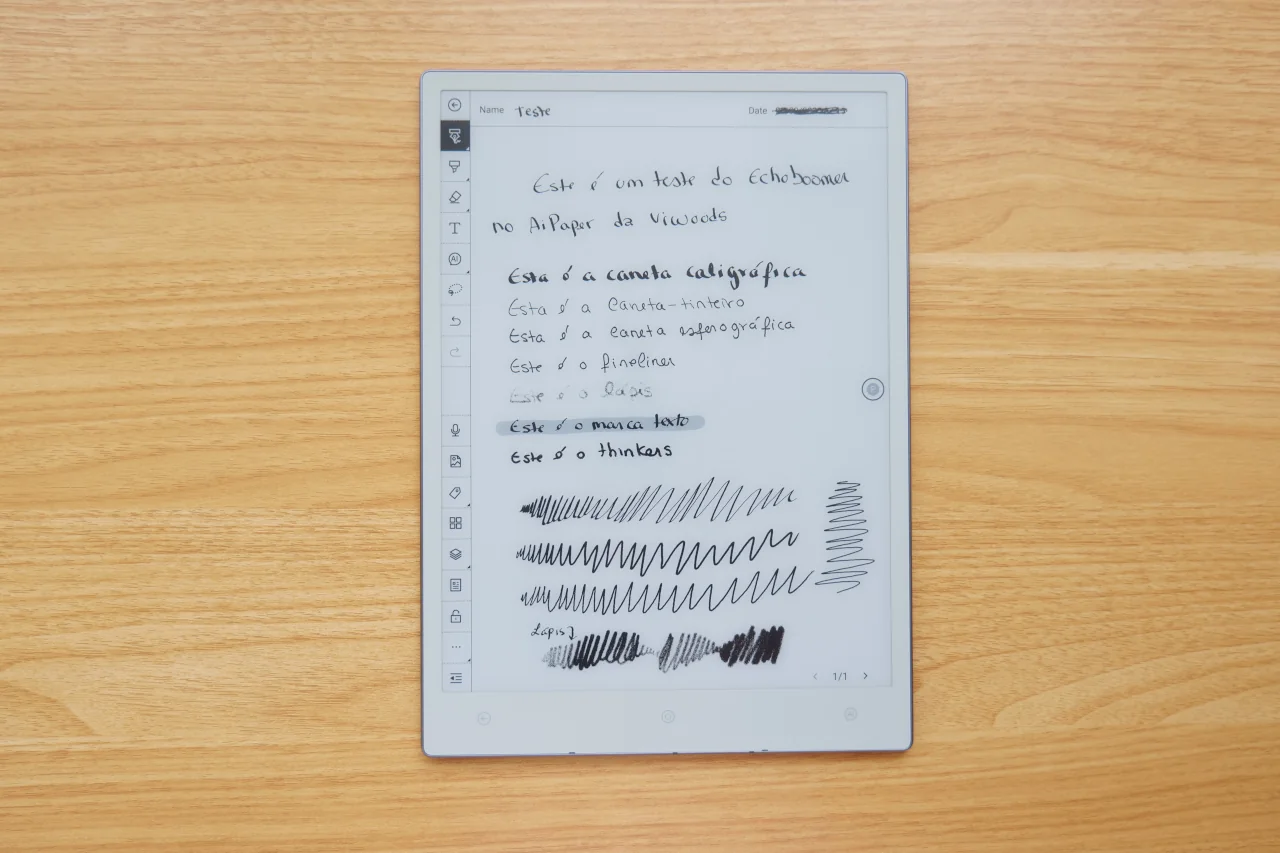 Name Teste Date
Este é um teste do Echoboomer
no AiPaper da Viwoods
Esta é a caneta caligráfica
Esta é a caneta-tinteiro
Esta é a caneta esferográfica
Este é o fineliner
Este é o lápis
Este é o marca texto
Este é o thinkers
Lápis
1/1
T
AI